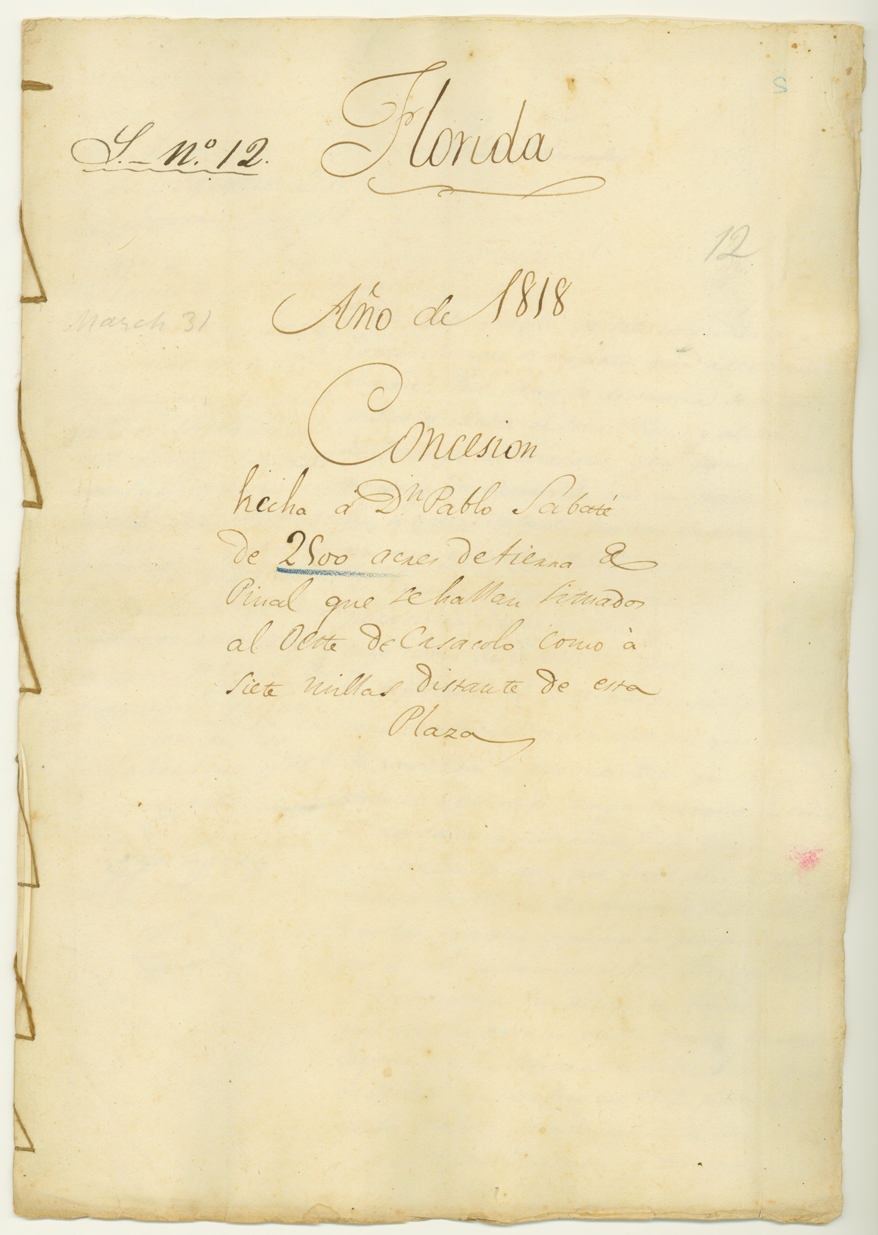 S
Florida
S. nº. 12.
12
Año de 1818
March 31
Concesion
hecha á Dn. Pablo Sabaté
de 2500 acres de tierra
Pinal que se hallan situados
al Oeste de Casacolo como à
siete millas distante de esta
Plaza